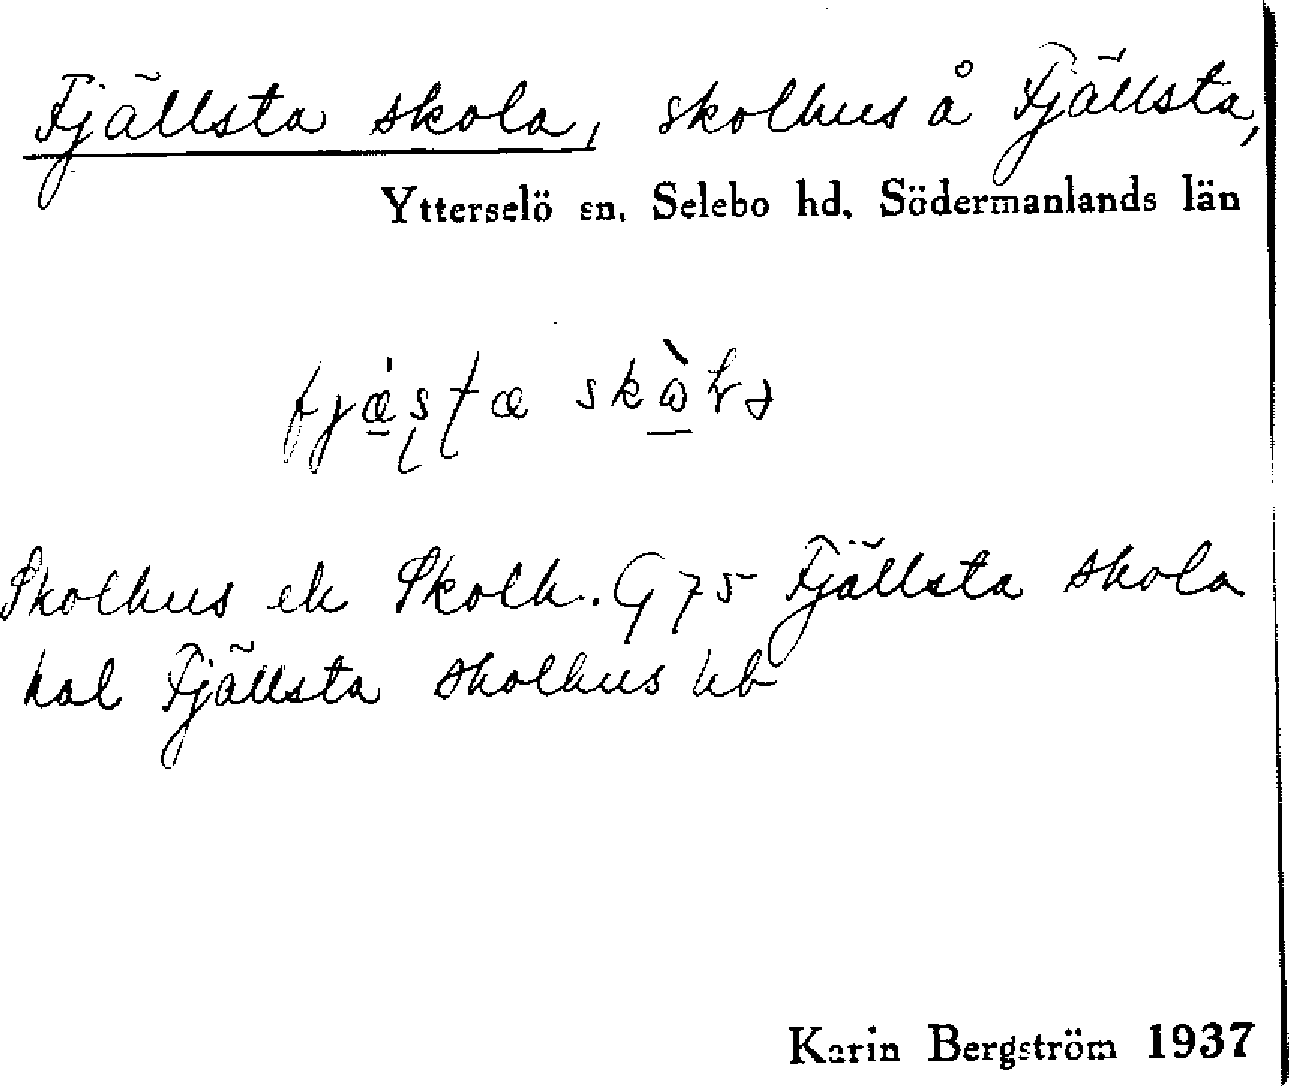 Fjällsta skola, skolhus å Fjällsta,
Ytterselö sn. Selebo hd. Södermanlands län
Skolhus ek Skolh. G 75 Fjällsta skola
hal Fjällsta skolhus hb
Karin Bergström 1937